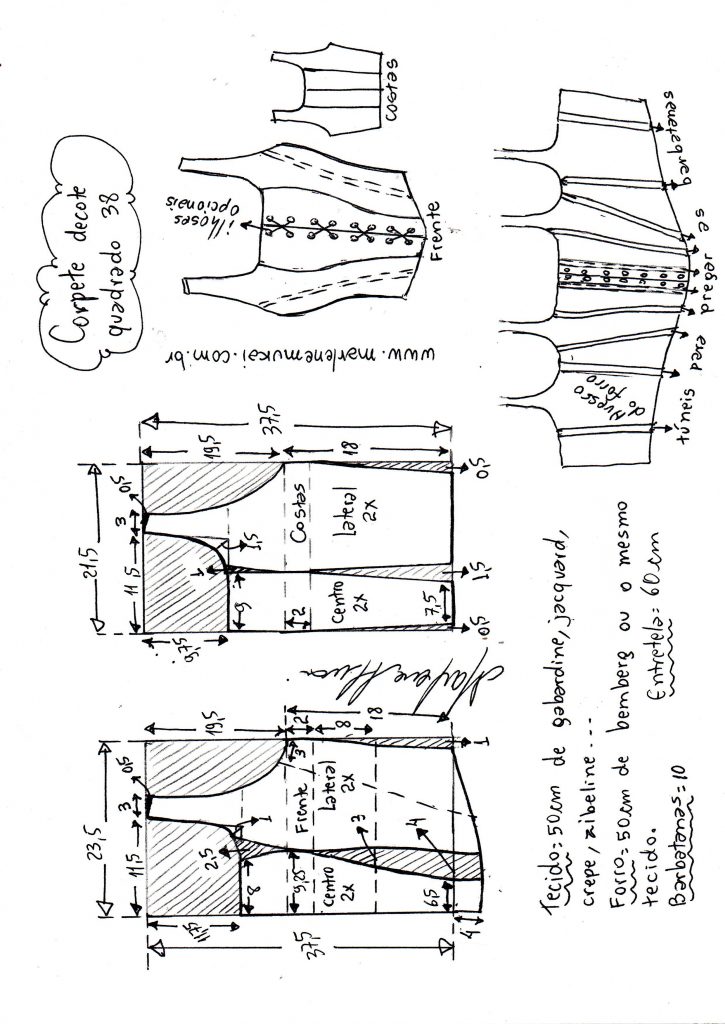 Corpete decote
quadrado 38
ilhoses
opcionais
Frente
costas
www.marlenemukai.com.br
túneis para pregar as barbatanas
Avesso
do forro
23,5
11,5
3
0,5
19,5
11,75
37,5
2,5
1
8
9,25
Frente
centro
2x
Lateral
2x
3
2
8
18
3
4
6,5
4
1
21,5
11,5
3
0,5
19,5
37,5
9,75
1
1,5
9
2
Costas
centro
2x
Lateral
2x
18
7,5
0,5
1,5
0,5
Tecido=50cm de gabardine, jacquard,
crepe, zibeline...
Forro=50cm de bemberg ou o mesmo
tecido.
Entretela=60cm
Barbatanas=10